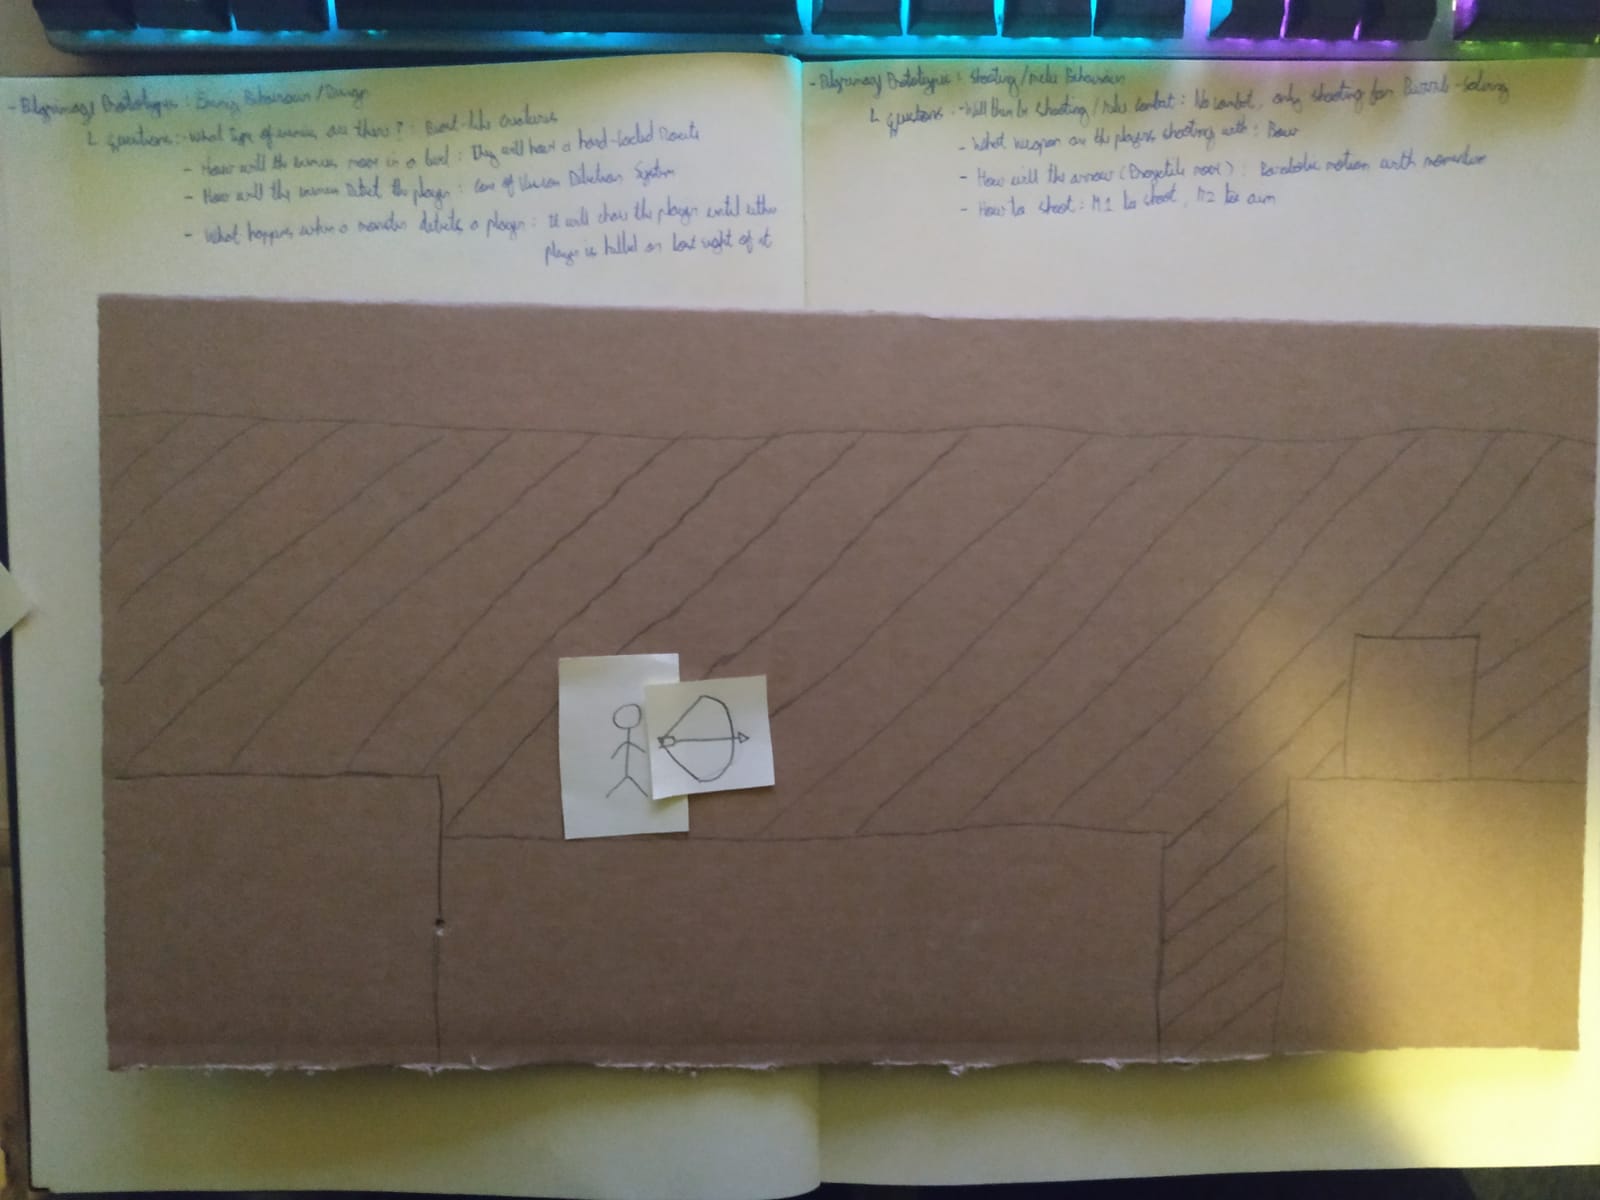 - Pilgrimage Prototypes : Enemy Behaviour / Design
↳ Questions : - What type of enemies are there? : Beast-like Creatures
- How will the enemies move in a level : They will have a hard-coded Route
- How will the enemies Detect the player : Cone of Vision Detection System
- What happens when a monster detects a player : It will chase the player until either
player is killed or lost sight of it
- Pilgrimage Prototypes : Shooting / Melee Behaviour
↳ Questions : - Will there be shooting / melee combat : No combat, only shooting for Puzzle-Solving
- What weapon are the players shooting with : Bow
- How will the arrow (Projectile move) : Parabolic motion with momentum
- How to shoot : M1 to shoot, M2 to aim